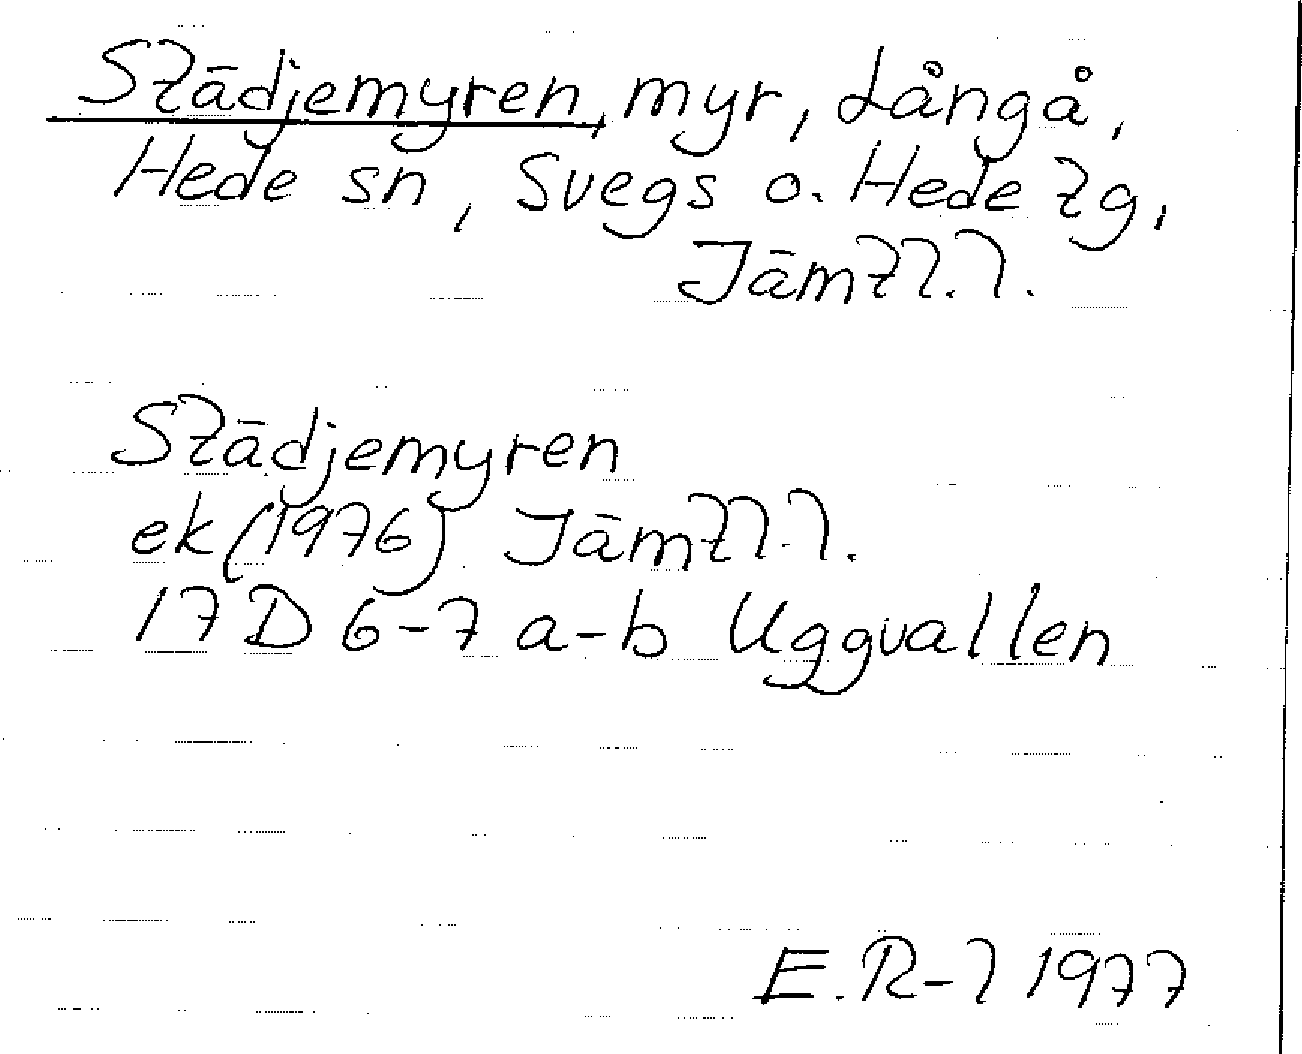 Städjemyren, myr, Långå,
Hede sn, Svegs o. Hede tg,
Jämtl.l.
Städjemyren
ek (1976) Jämtl.l.
17 D 6-7 a-b Uggvallen
E.R-l 1977